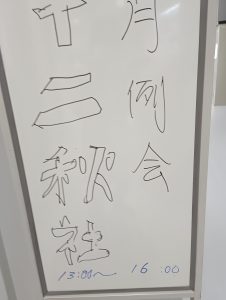 月例会
十二秋社
13:00〜 16:00